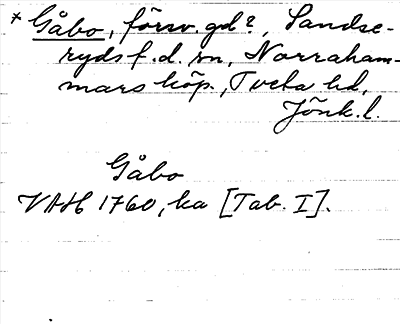 * Gåbo, försv. gd?, Sandse-
ryds f.d. sn, Norraham-
mars köp., Tveta hd,
Jönk. l.
Gåbo
VAH 1760, ka [Tab. I].